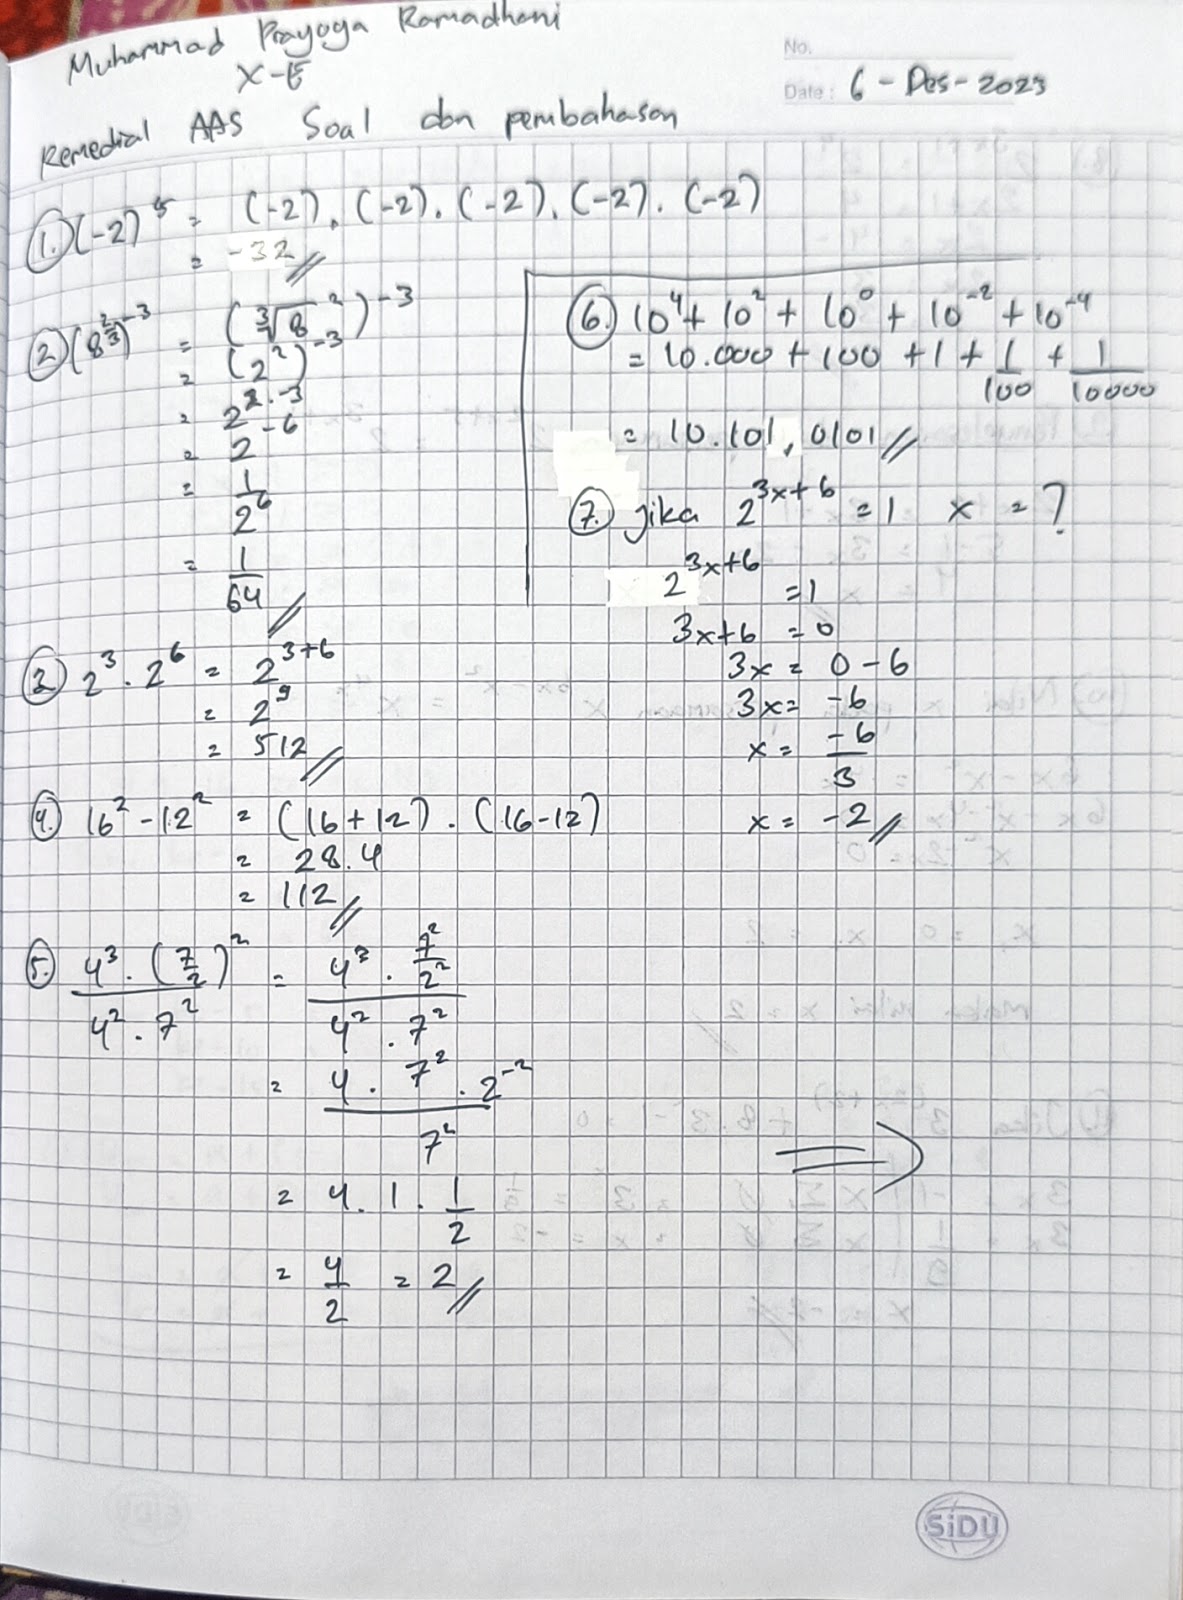 Muhammad Prayoga Ramadhani
X-E
No.
Date : 6 - Des - 2023
Remedial AAS Soal dan pembahasan
1. (-2)⁵ = (-2) . (-2) . (-2) . (-2) . (-2)
= -32
2. (8^(2/3))^-3 = (∛8²)^-3
= (2²)^-3
= 2^(2.-3)
= 2^-6
= 1/2⁶
= 1/64
3. 2³ . 2⁶ = 2^(3+6)
= 2⁹
= 512
4. 16² - 12² = (16+12) . (16-12)
= 28.4
= 112
5. (4³ . (7/2)²)/(4² . 7²) = (4³ . 7²/2²)/(4² . 7²)
= (4 . 7² . 2^-2)/7²
= 4 . 1 . 1/2
= 4/2 = 2
6. 10⁴ + 10² + 10⁰ + 10^-2 + 10^-4
= 10.000 + 100 + 1 + 1/100 + 1/10000
= 10.101,0101
7. Jika 2^(3x+6) = 1 x = ?
2^(3x+6) = 1
3x+6 = 0
3x = 0 - 6
3x = -6
x = -6/3
x = -2
SiDU